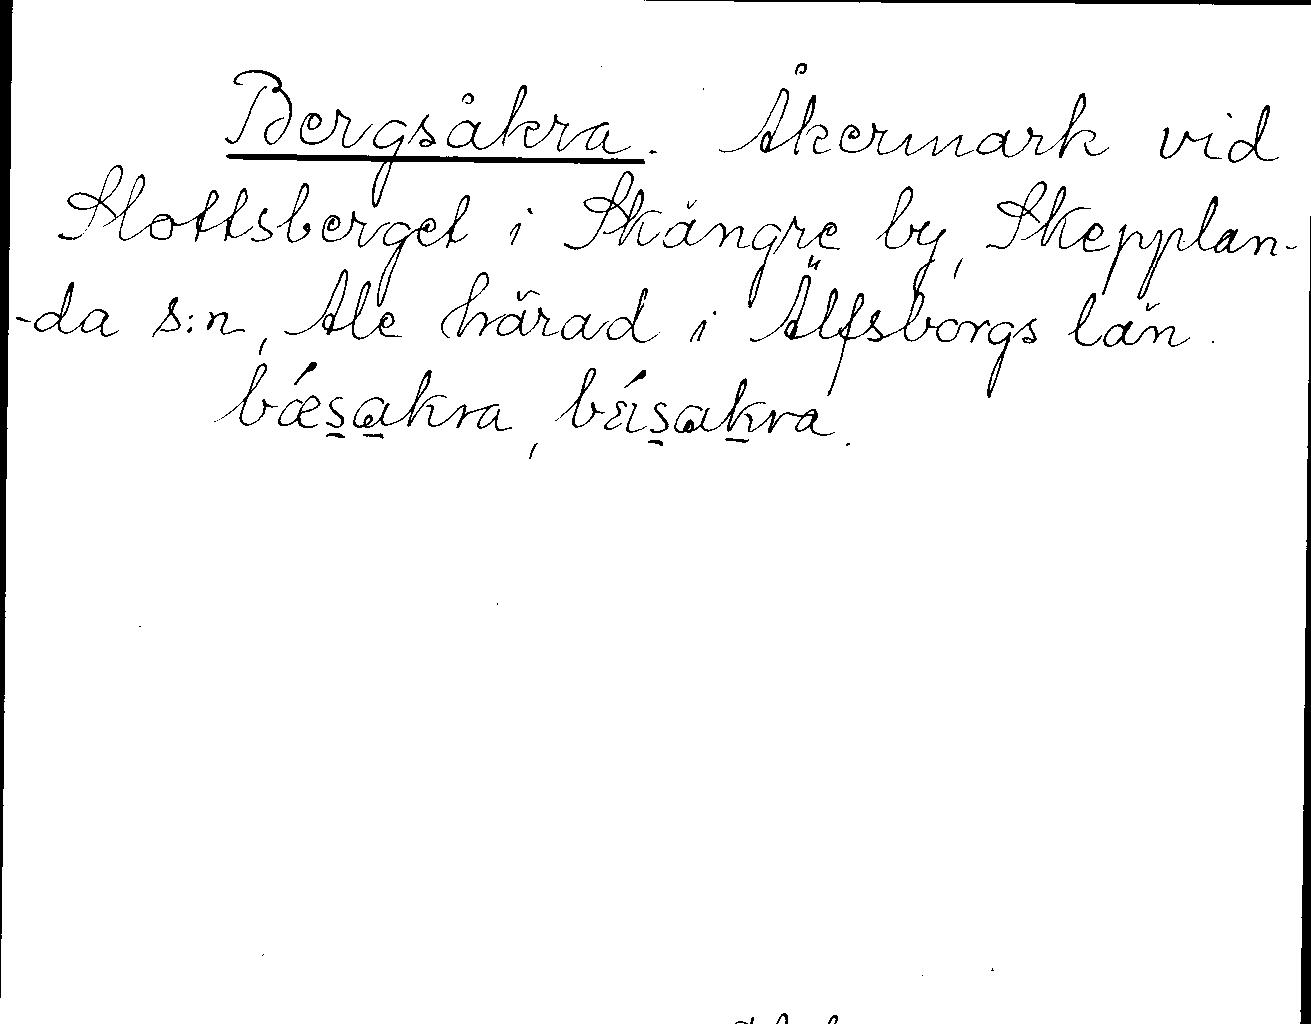 Bergsåkra. Åkermark vid
Slottsberget i Skångre by, Skepplan-
-da s:n, Ale härad i Älfsborgs län.
bǽs̱a̱kra, bɛ́ɪs̱aḵra.